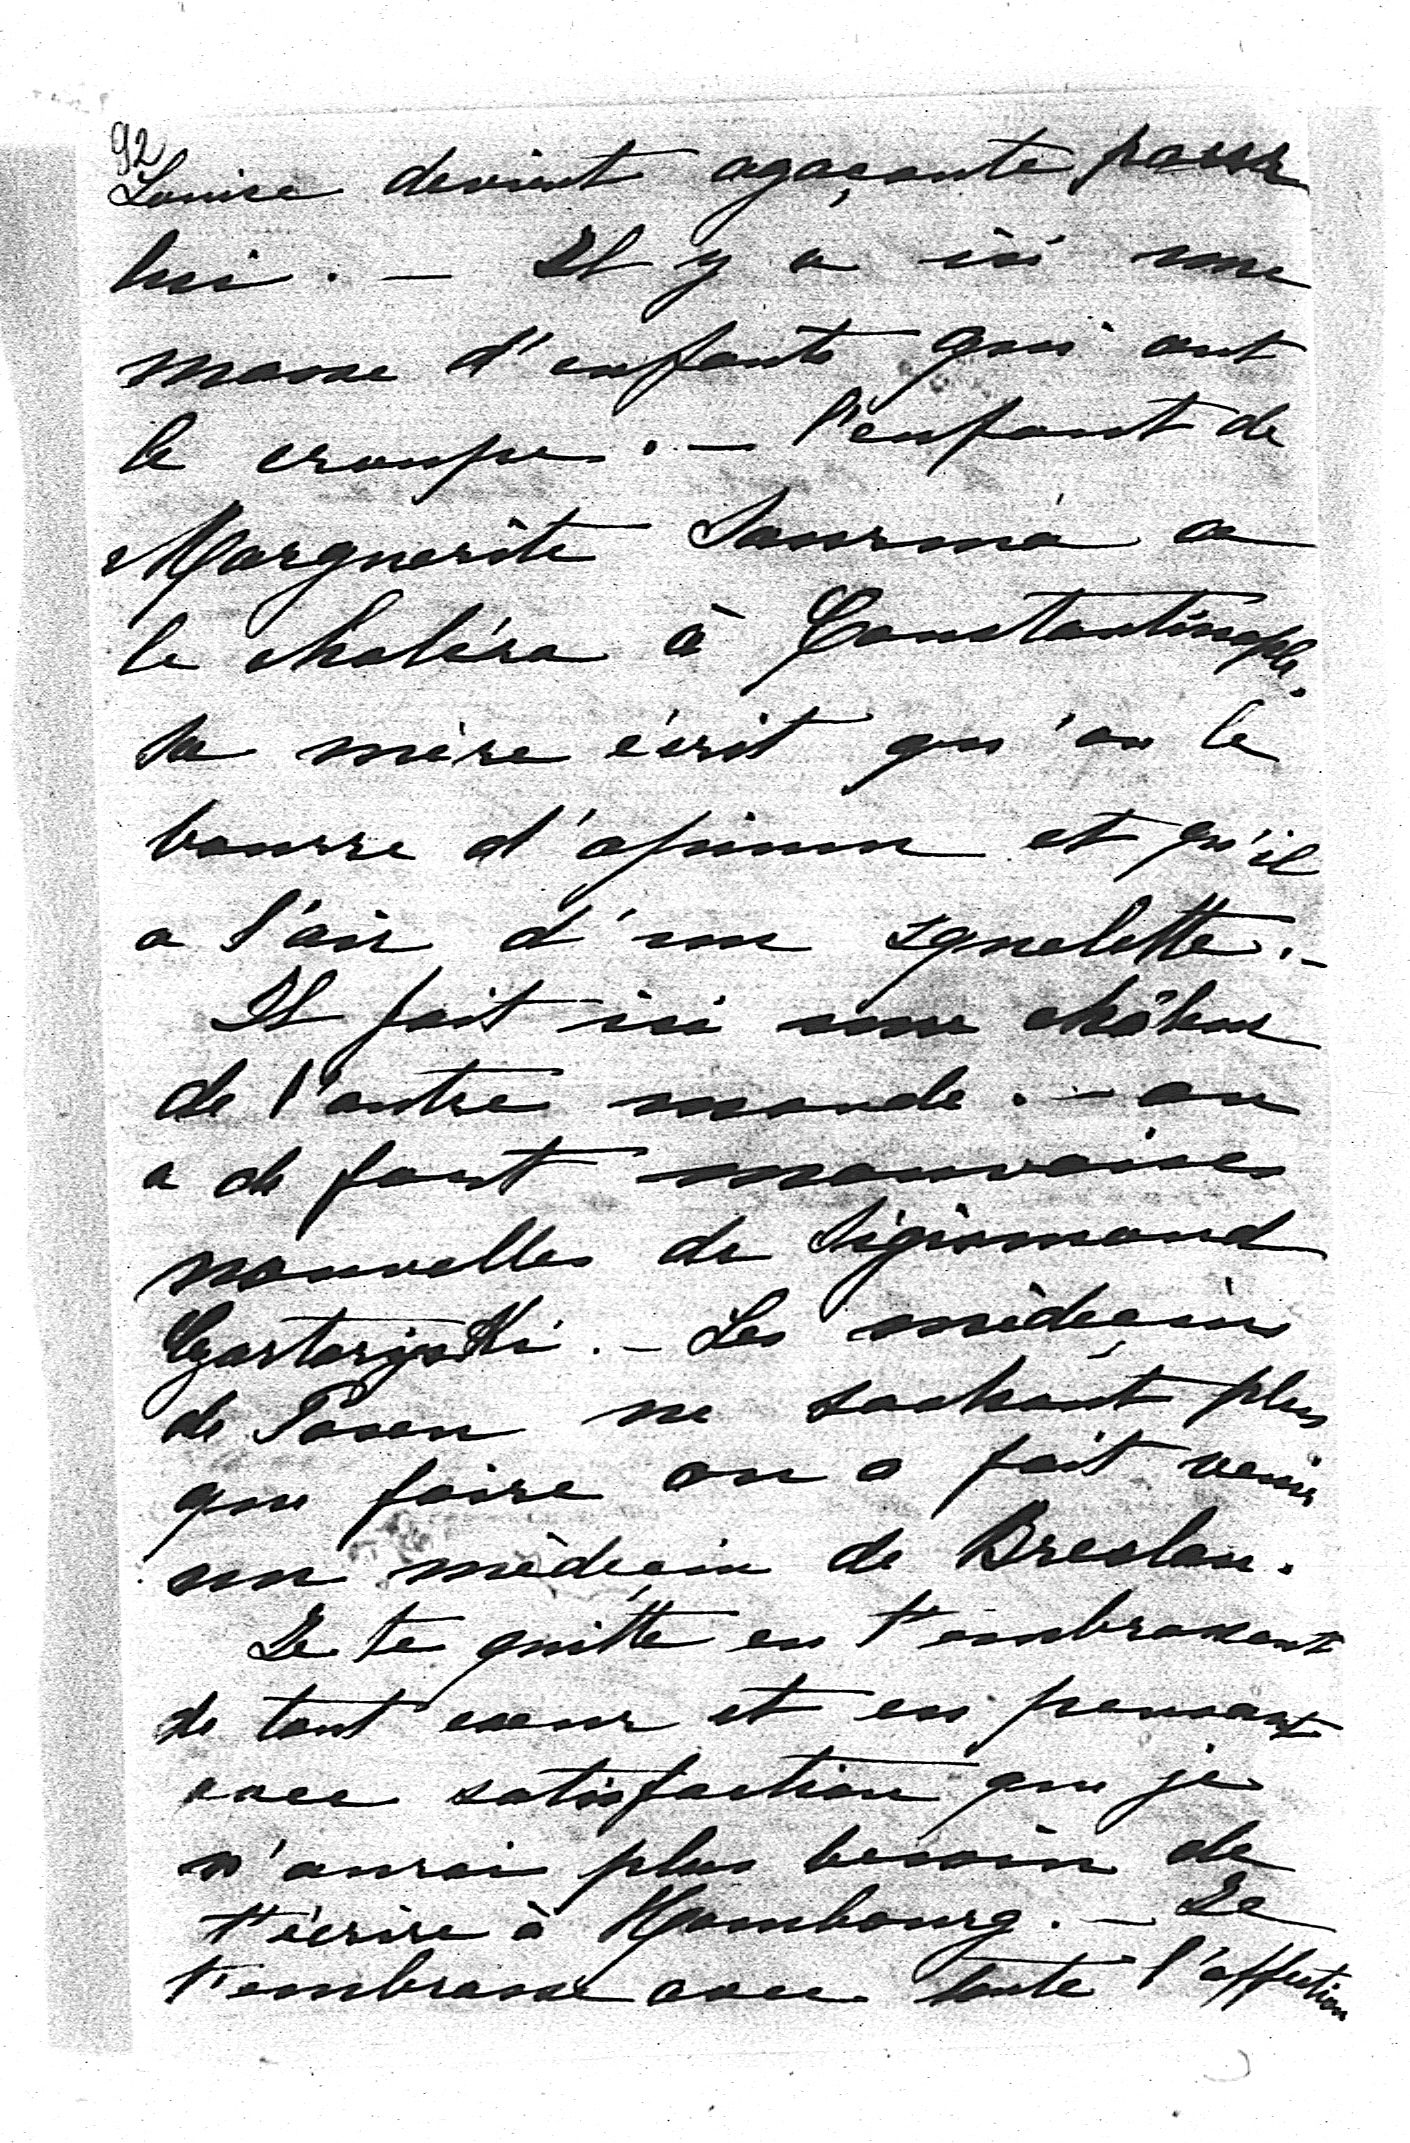 92
Louise devient agaçante pour
lui. — Il y a ici une
masse d'enfants qui ont
le croupe. — l'enfant de
Marguerite Saurma a
le choléra à Constantinople.
sa mère écrit qu'on le
bourre d'opium et qu'il
a l'air d'un squelette. —
Il fait ici une châleur
de l'autre monde. — on
a de fort mauvaises
nouvelles de Sigismond
Czartoryski. — Les médeçins
de Posen ne sachant plus
que faire on a fait venir
un médeçin de Breslau.
Je te quitte en t'embrassant
de tout coeur et en pensant
avec satisfaction que je
n'aurai plus besoin de
t'écrire à Hombourg. — Je
t'embrasse avec toute l'affection